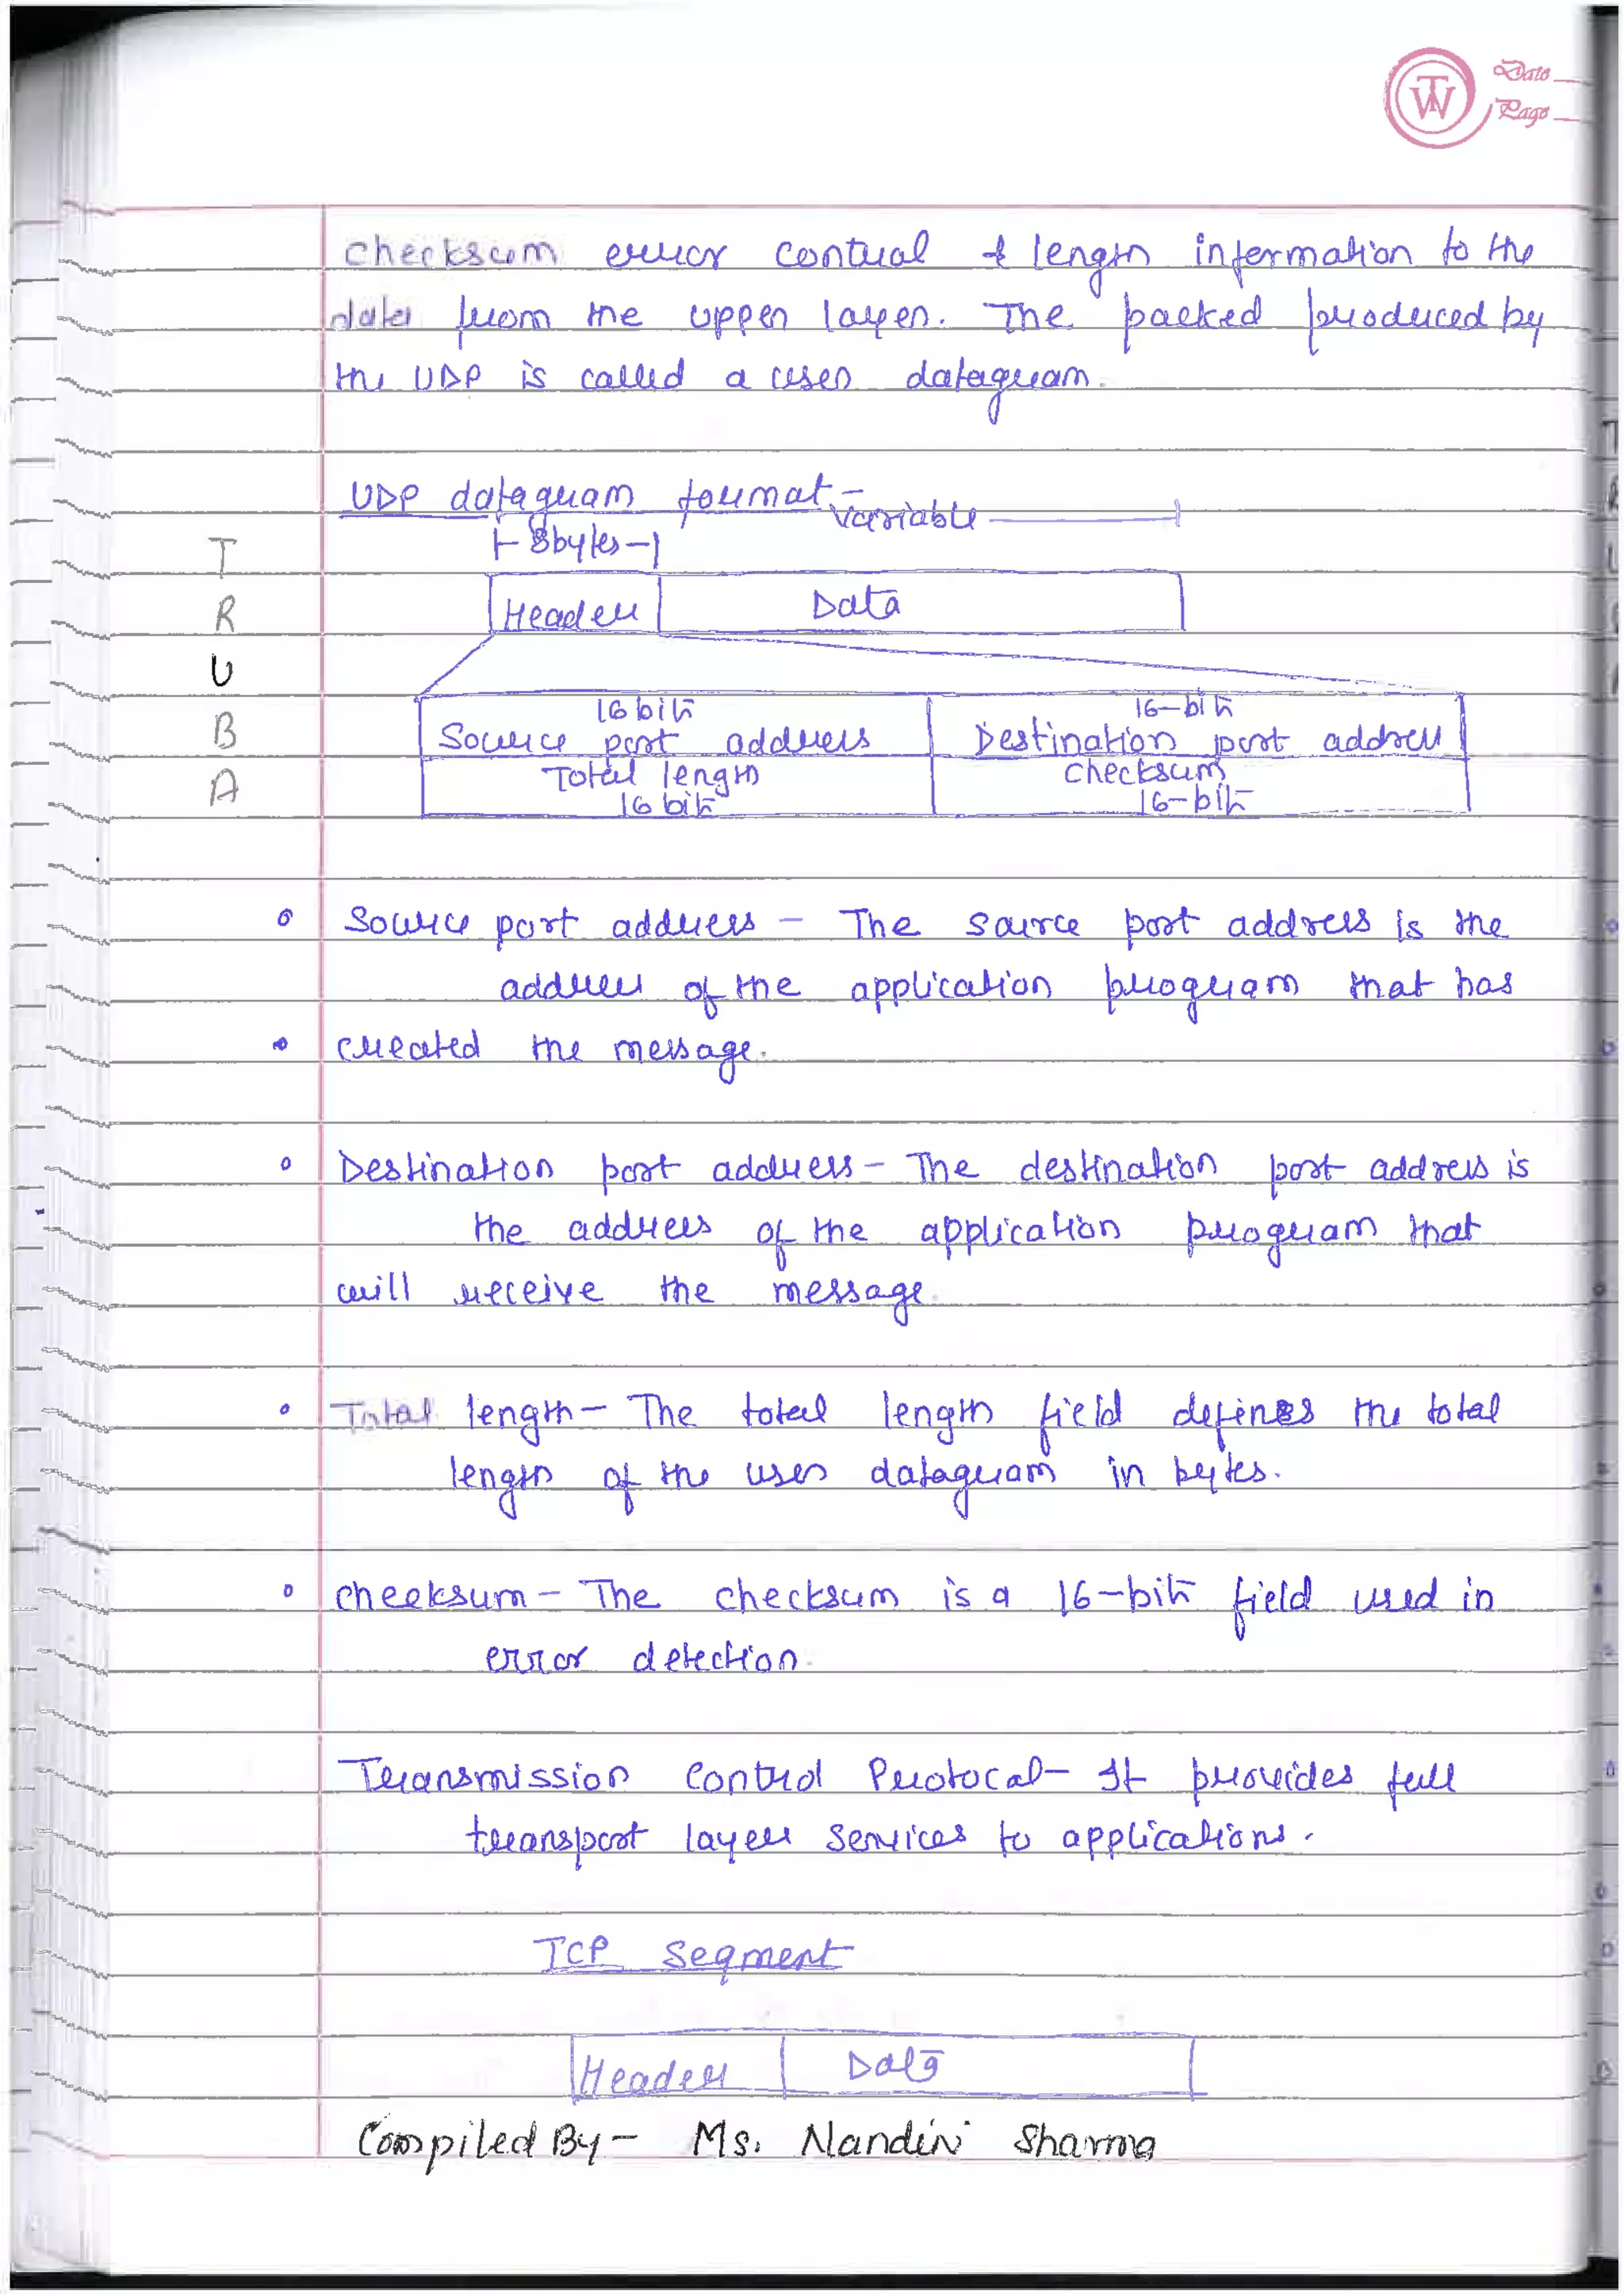 Date
Page
checksum error control & length information to the
data from the upper layer. The packed produced by
the UDP is called a user datagram.
UDP datagram format -
variable
8bytes
T
R
U
B
A
Header Data
16 bits 16-bits
Source port address Destination port address
Total length checksum
16 bits 16-bits
Source port address - The source port address is the
address of the application program that has
created the message.
Destination port address - The destination port address is
the address of the application program that
will receive the message.
Total length - The total length field defines the total
length of the user datagram in bytes.
checksum - The checksum is a 16-bits field used in
error detection.
Transmission Control Protocal - It provides full
transport layer services to applications.
TCP Segment
Header Data
Compiled By - Ms. Nandini Sharma